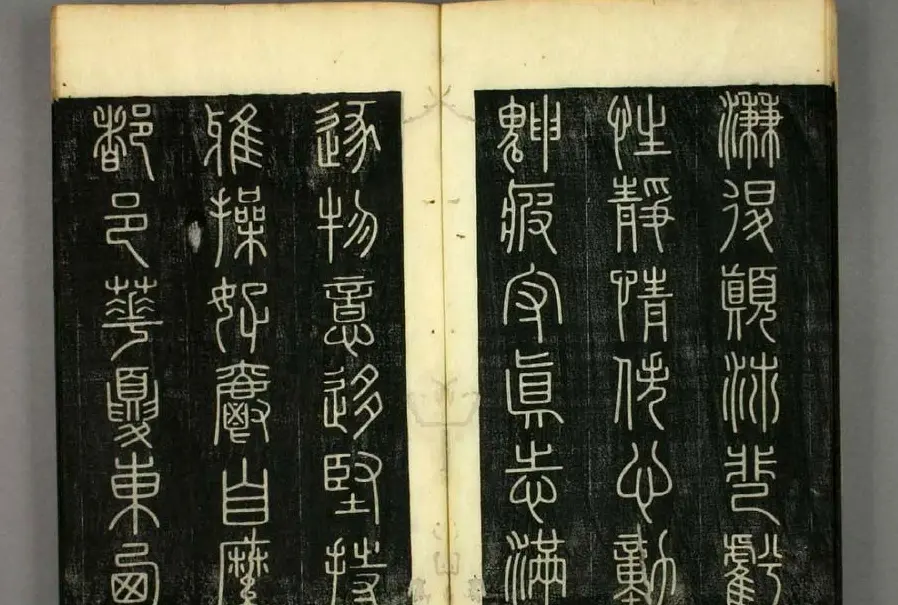 溓退顛沛匪虧
性靜情佚心動
䰠疲守真志滿
逐物意迻堅持
雅操好爵自縻
都邑華夏東西